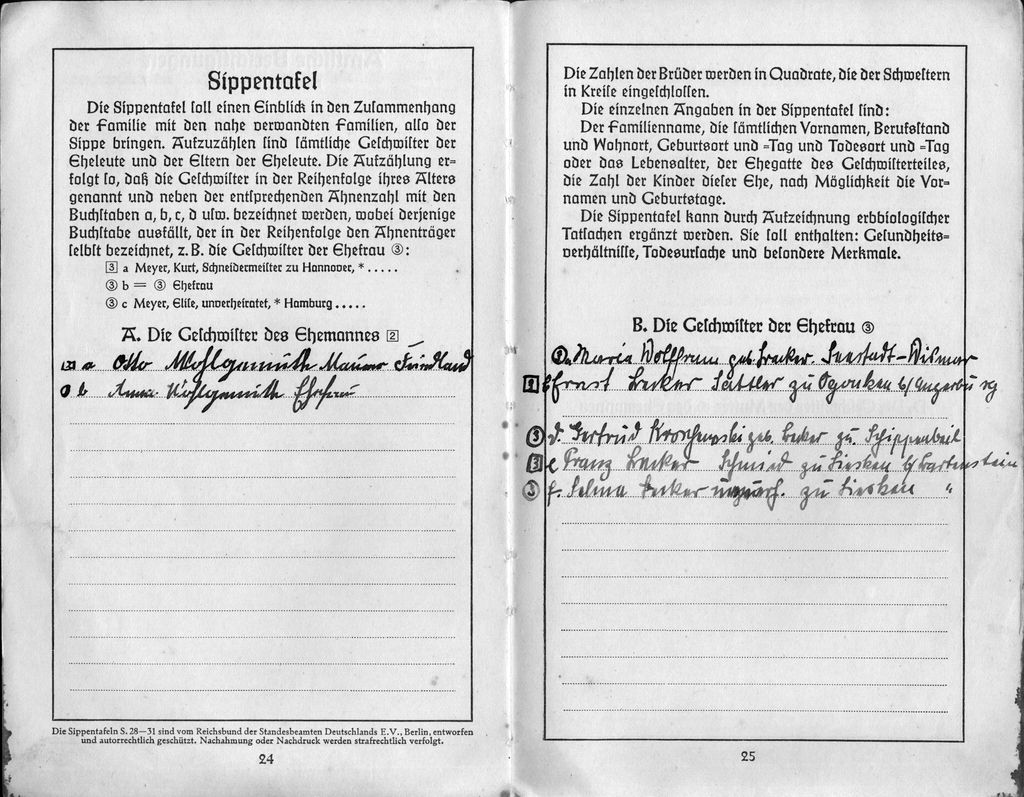 Sippentafel
Die Sippentafel soll einen Einblick in den Zusammenhang
der Familie mit den nahe verwandten Familien, also der
Sippe bringen. Aufzuzählen sind sämtliche Geschwister der
Eheleute und der Eltern der Eheleute. Die Aufzählung er-
folgt so, daß die Geschwister in der Reihenfolge ihres Alters
genannt und neben der entsprechenden Ahnenzahl mit den
Buchstaben a, b, c, d usw. bezeichnet werden, wobei derjenige
Buchstabe ausfällt, der in der Reihenfolge den Ahnenträger
selbst bezeichnet, z. B. die Geschwister der Ehefrau ③:
3 a Meyer, Kurt, Schneidermeister zu Hannover, * . . . . .
③ b = ③ Ehefrau
③ c Meyer, Elise, unverheiratet, * Hamburg . . . . .
A. Die Geschwister des Ehemannes 2
a Otto Wohlgemuth Maurer
b Anna Wohlgemuth Ehefrau
Die Sippentafeln S. 28—31 sind vom Reichsbund der Standesbeamten Deutschlands E.V., Berlin, entworfen
und autorrechtlich geschützt. Nachahmung oder Nachdruck werden strafrechtlich verfolgt.
24
Die Zahlen der Brüder werden in Quadrate, die der Schwestern
in Kreise eingeschlossen.
Die einzelnen Angaben in der Sippentafel sind:
Der Familienname, die sämtlichen Vornamen, Berufsstand
und Wohnort, Geburtsort und -Tag und Todesort und -Tag
oder das Lebensalter, der Ehegatte des Geschwisterteiles,
die Zahl der Kinder dieser Ehe, nach Möglichkeit die Vor-
namen und Geburtstage.
Die Sippentafel kann durch Aufzeichnung erbbiologischer
Tatsachen ergänzt werden. Sie soll enthalten: Gesundheits-
verhältnisse, Todesursache und besondere Merkmale.
B. Die Geschwister der Ehefrau ③
a Maria Wolffram geb. Becker. Seestadt-Wismar
Ernst Becker Sattler zu b/ Angerburg
③ d. Gertrud geb. Becker zu Schippenbeil
3 e Franz Becker Schmied zu Liesken b/ Bartenstein
③ f. Selma Becker zu Liesken "
25